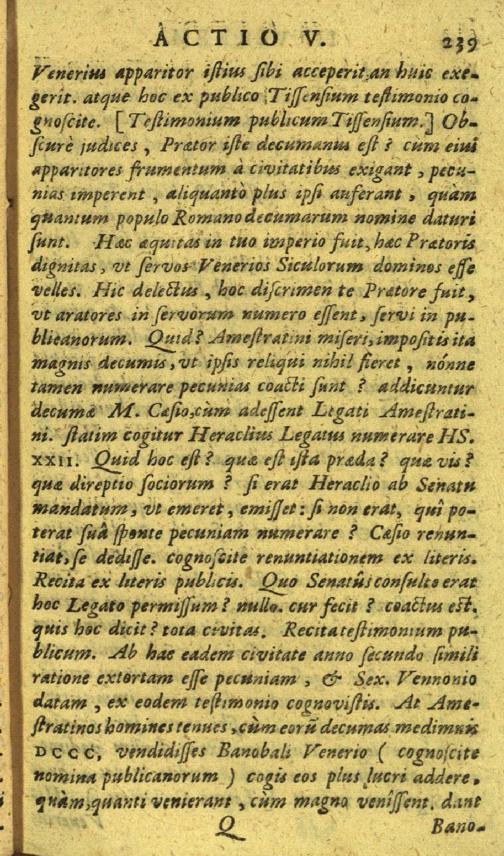 ACTIO V. 239
Venerius apparitor istius sibi acceperit, an huic exe-
gerit. atque hoc ex publico Tissensium testimonio co-
gnoscite. [Testimonium publicum Tissensium.] Ob-
scurè judices, Prætor iste decumanus est? cum eius
apparitores frumentum à civitatibus exigant, pecu-
nias imperent, aliquantò plus ipsi auferant, quàm
quantum populo Romano decumarum nomine daturi
sunt. Hæc æquitas in tuo imperio fuit, hæc Prætoris
dignitas, vt servos Venerios Siculorum dominos esse
velles. Hic delectus, hoc discrimen te Prætore fuit,
vt aratores in servorum numero essent, servi in pu-
blieanorum. Quid? Amestratini miseri, impositis ita
magnis decumis, vt ipsis reliqui nihil fieret, nónne
tamen numerare pecunias coacti sunt? addicuntur
decumæ M. Cæsio, cùm adessent Legati Amestrati-
ni. statim cogitur Heraclius Legatus numerare HS.
XXII. Quid hoc est? quæ est ista præda? quæ vis?
quæ direptio sociorum? si erat Heraclio ab Senatu
mandatum, vt emeret, emisset: si non erat, quî po-
terat suâ sponte pecuniam numerare? Cæsio renun-
tiat, se dedisse. cognoscite renuntiationem ex literis.
Recita ex literis publicis. Quo Senatûs consulto erat
hoc Legato permissum? nullo. cur fecit? coactus est.
quis hoc dicit? tota civitas. Recita testimonium pu-
blicum. Ab hac eadem civitate anno secundo simili
ratione extortam esse pecuniam, & Sex. Vennonio
datam, ex eodem testimonio cognovistis. At Ame-
stratinos homines tenues, cùm eorũ decumas medimnis
DCCC, vendidisses Banobali Venerio (cognoscite
nomina publicanorum) cogis eos plus lucri addere,
quàm, quanti venierant, cùm magno venîssent. dant
Q Bano-